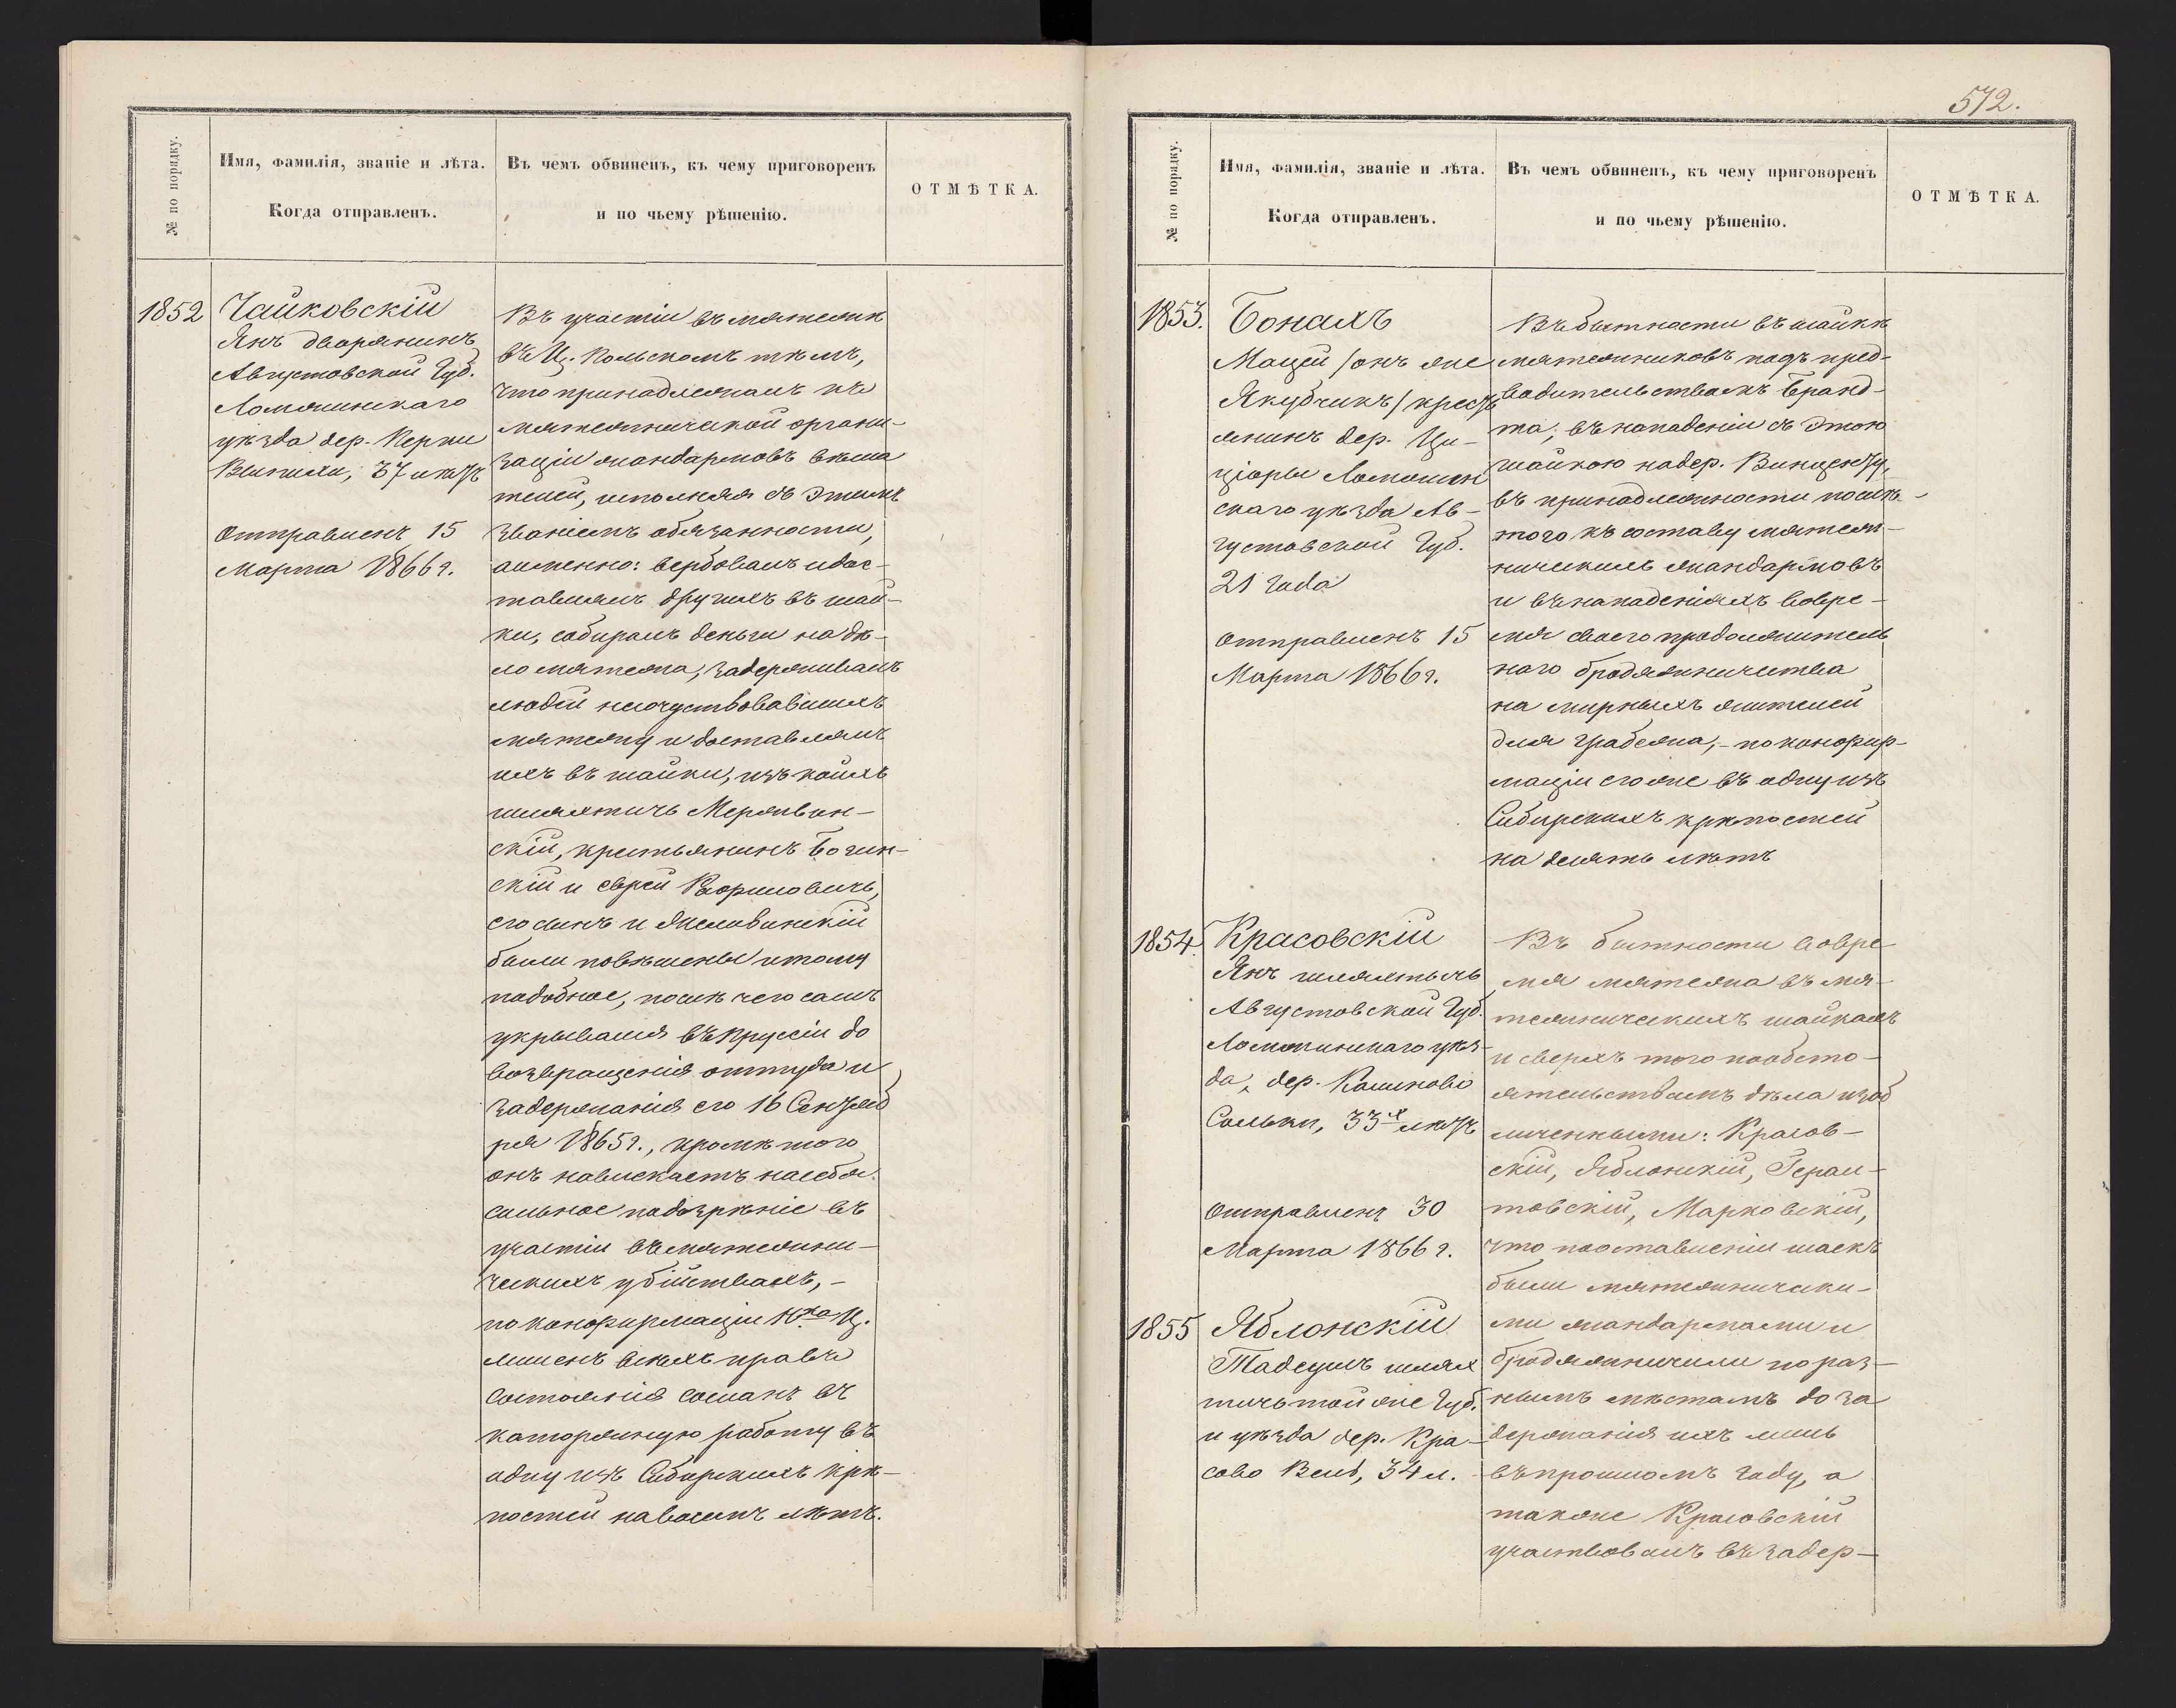 № по порядку.
Имя, фамилія, званіе и лѣта.
Когда отправленъ.
Въ чемъ обвиненъ, къ чему приговоренъ
и по чьему рѣшенію.
ОТМѢТКА.
1852
Чайковскій
Янъ дворянинъ
Августовской Губ.
Ломжинскаго
уѣзда дер.
37 лѣтъ
Отправленъ 15
Марта 1866 г.
Въ участіи въ мятежѣ
въ Ц. Польскомъ тѣмъ,
что принадлежалъ къ
мятежнической органи-
заціи жандармовъ вѣша
телей, исполняя съ этимъ
званіемъ обязанности,
а именно: вербовалъ и дос-
тавлялъ другихъ въ шай-
ки, собиралъ деньги на дѣ-
ло мятежа, задерживалъ
людей несочуствовавшихъ
мятежу и доставлялъ
ихъ въ шайки, изъ коихъ
шляхтичъ Мержвин-
скій, крестьянинъ Богин-
скій и еврей
его сынъ и
были повѣшены и тому
подобное, послѣ чего самъ
укрывался въ Пруссіи до
возвращенія оттуда и
задержанія его 16 Сентяб
ря 1865 г., кромѣ того
онъ навлекаетъ на себя
сильное подозрѣніе въ
участіи въ мятежни-
ческихъ убійствахъ, -
по конфирмаціи
лишенъ всѣхъ правъ
состоянія сосланъ въ
каторжную работу въ
одну изъ Сибирскихъ крѣ-
постей на восемь лѣтъ.
572.
№ по порядку.
Имя, фамилія, званіе и лѣта.
Когда отправленъ.
Въ чемъ обвиненъ, къ чему приговоренъ
и по чьему рѣшенію.
ОТМѢТКА.
1853.
Бонахъ
Мацей /онъ же
Якубчикъ/ кресть
янинъ дер. Ци-
ціоры Ломжин
скаго уѣзда Ав-
густовской Губ.
21 года
Отправленъ 15
Марта 1866 г.
Въ бытности въ шайкѣ
мятежниковъ подъ пред-
водительствомъ Бранд-
та, въ нападеніи съ этою
шайкою на дер. Винценту,
въ принадлежности послѣ
того къ составу мятеж-
ническихъ жандармовъ
и въ нападеніяхъ во вре-
мя своего продолжитель
наго бродяжничества
на мирныхъ жителей
для грабежа, - по конфир-
маціи его же въ одну изъ
Сибирскихъ крѣпостей
на десять лѣтъ
1854.
Красовскій
Янъ шляхтычъ
Августовской Губ.
Ломжинскаго уѣз-
да, дер.
33х лѣтъ
Отправленъ 30
Марта 1866 г.
Въ бытности во вре
мя мятежа въ мя-
тежническихъ шайкахъ
и сверхъ того по обсто-
ятельствамъ дѣла изоб
личенными: Красов-
скій, Яблонскій, Герал-
товскій, Марковскій,
что по оставленіи шаекъ
были мятежнически-
ми жандармами и
бродяжничали по раз-
нымъ мѣстамъ до за
держанія ихъ лишь
въ прошломъ году, а
также Красовскій
участвовалъ въ задер-
1855
Яблонскій
Тадеушъ шлях
тичъ той же Губ.
и уѣзда дер. Кра-
сово 34 л.